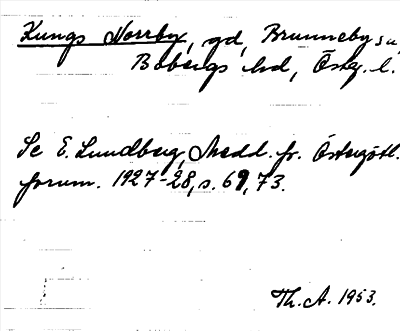 Kungs Norrby, gd, Brunneby sn,
Bobergs hd, Östg. l.
Se E. Lundberg, Medd. fr. Östergötl.
forum. 1927-28, s. 69, 73.
Th. A. 1953.